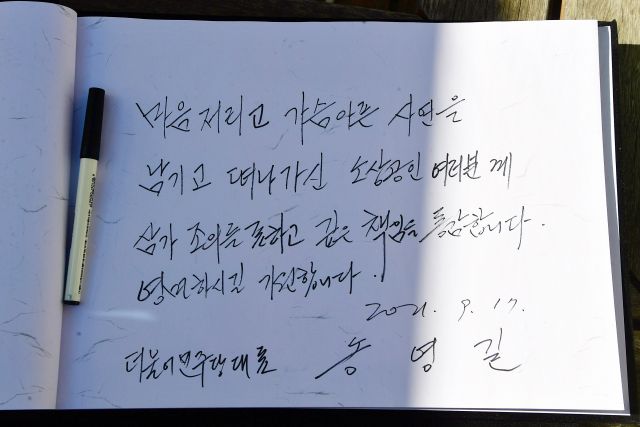 마음 저리고 가슴아픈 사연을
남기고 떠나가신 소상공인 여러분께
삼가 조의를 표하고 깊은 책임을 통감합니다.
영면하시길 기원합니다.
2021. 9. 17.
더불어민주당대표 송영길